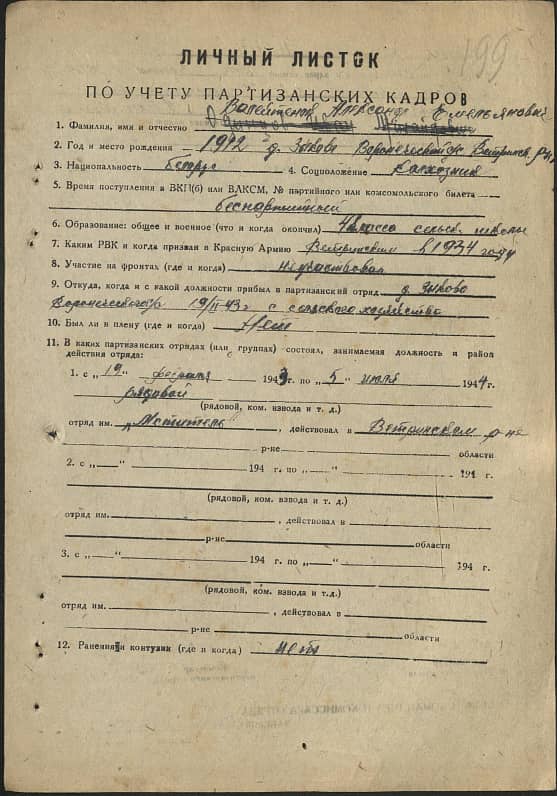 199
ЛИЧНЫЙ ЛИСТОК
ПО УЧЕТУ ПАРТИЗАНСКИХ КАДРОВ
Александр Емельянович
1. Фамилия, имя и отчество
2. Год и место рождения 1912 д. Зиково Воронеческий с/с Ветринск. р-н
3. Национальность белорус 4. Соцположение колхозник
5. Время поступления в ВКП(б) или ВЛКСМ, № партийного или комсомольского билета
беспартийный
6. Образование: общее и военное (что и когда окончил) 4 класса сельск. школы
7. Каким РВК и когда призван в Красную Армию Ветринским в 1934 году
8. Участие на фронтах (где и когда) не участвовал
9. Откуда, когда и с какой должности прибыл в партизанский отряд д. Зиково
Воронеческого 19/II-43г с сельского хозяйства
10. Был ли в плену (где и когда) Нет
11. В каких партизанских отрядах (или группах) состоял, занимаемая должность и район
действия отряда:
1. с „19" февраля 1943 г. по „5" июля 1944 г.
рядовой
(рядовой, ком. взвода и т. д.)
отряд им. „Мститель", действовал в Ветринском р-не
р-не области
2. с „ " 194 г. по „ " 194 г.
(рядовой, ком. взвода и т. д.)
отряд им. , действовал в
р-не области
3. с „ " 194 г. по „ " 194 г.
(рядовой, ком. взвода и т.д.)
отряд им. , действовал в
р-не области
12. Ранения и контузии (где и когда) нет